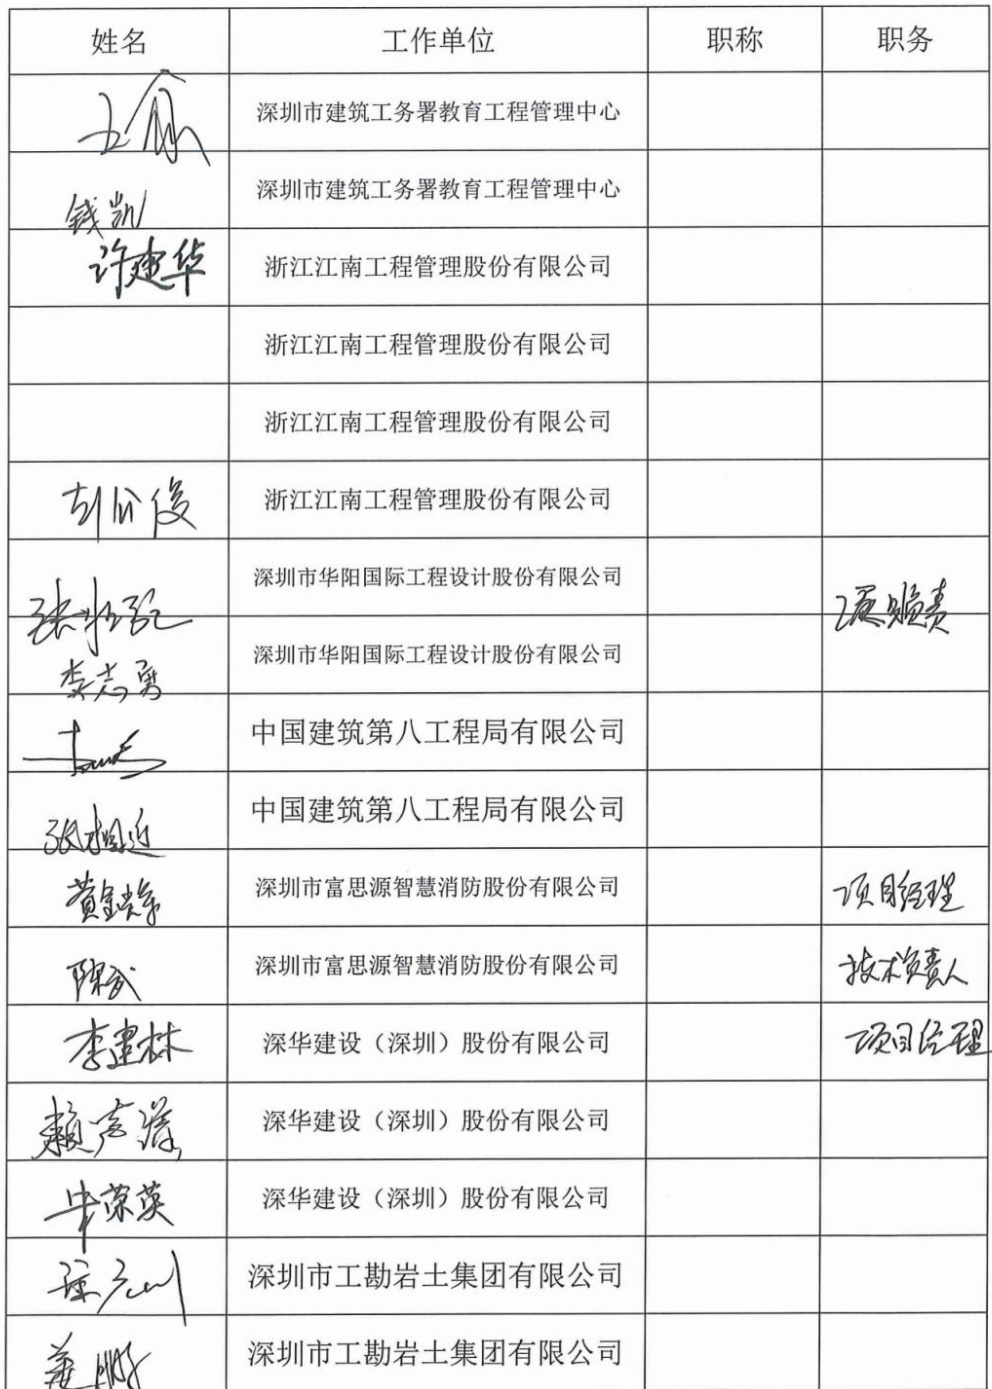 姓名 工作单位 职称 职务
深圳市建筑工务署教育工程管理中心
钱凯 深圳市建筑工务署教育工程管理中心
许建华 浙江江南工程管理股份有限公司
浙江江南工程管理股份有限公司
浙江江南工程管理股份有限公司
浙江江南工程管理股份有限公司
深圳市华阳国际工程设计股份有限公司
李志勇 深圳市华阳国际工程设计股份有限公司
中国建筑第八工程局有限公司
中国建筑第八工程局有限公司
深圳市富思源智慧消防股份有限公司 项目经理
陈武 深圳市富思源智慧消防股份有限公司 技术负责人
李建林 深华建设（深圳）股份有限公司 项目经理
深华建设（深圳）股份有限公司
牟荣英 深华建设（深圳）股份有限公司
深圳市工勘岩土集团有限公司
姜鹏 深圳市工勘岩土集团有限公司